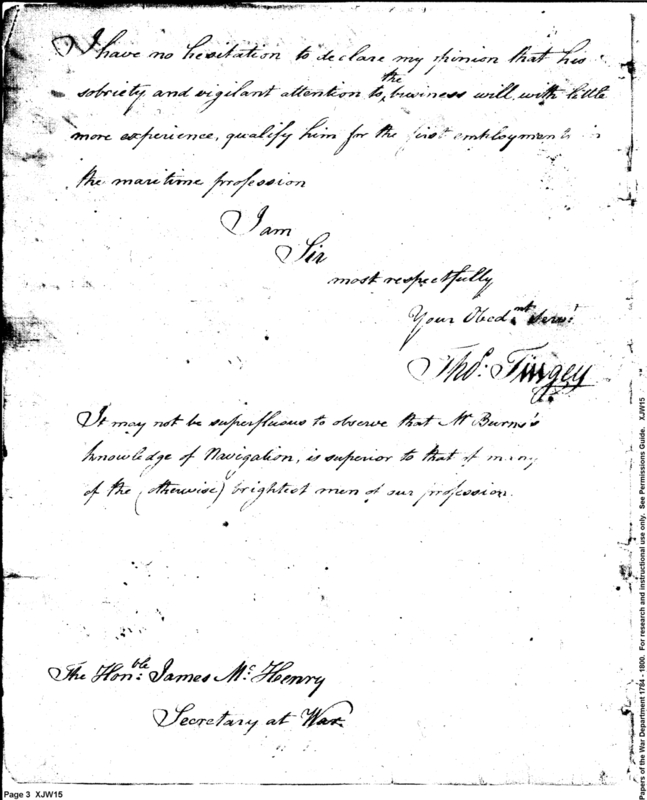 I have no hesitation to declare my opinion that his
sobriety and vigilant attention to the business will, with little
more experience, qualify him for the first employments in
the maritime profession
I am
Sir
most respectfully
Your Obedmt Servt
Thos: Tingey
It may not be superfluous to observe that Mr Burns's
knowledge of Navigation, is superior to that of many
of the (otherwise) brightest men of our profession.
The Honble: James Mc Henry
Secretary at War.
Page 3 XJW15
Papers of the War Department 1784 - 1800. For research and instructional use only. See Permissions Guide. XJW15